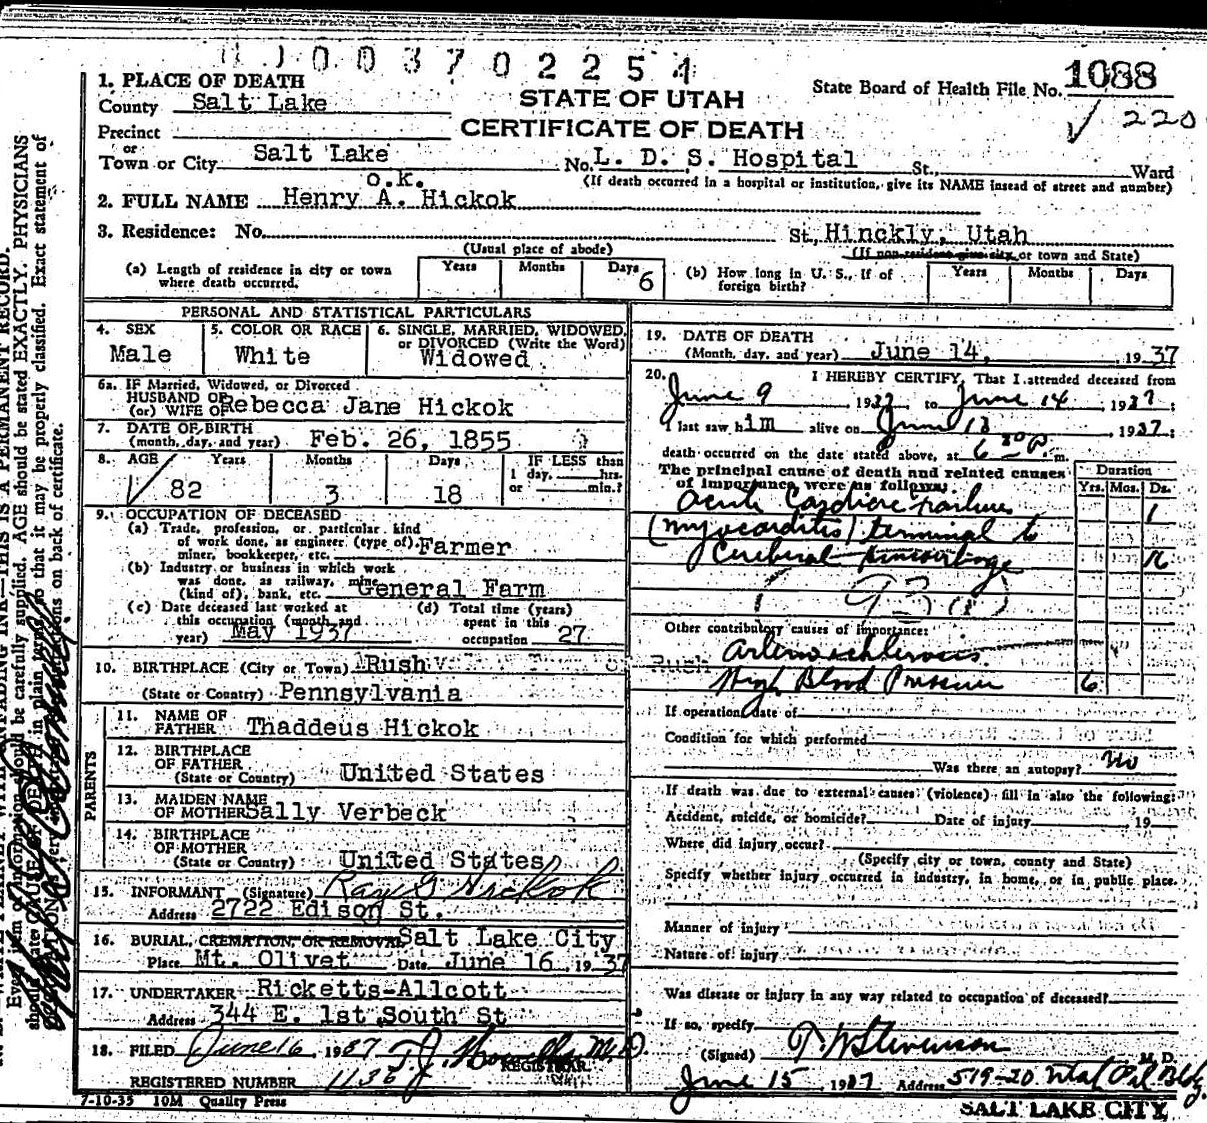 0 0 3 7 0 2 2 5 1
1. PLACE OF DEATH
County Salt Lake
STATE OF UTAH
CERTIFICATE OF DEATH
State Board of Health File No. 1088
√ 220
Precinct
or
Town or City Salt Lake No. L. D. S. Hospital St., Ward
(If death occurred in a hospital or institution, give its NAME instead of street and number)
o.k.
2. FULL NAME Henry A. Hickok
3. Residence: No. St, Hinckly, Utah
(Usual place of abode) (If non-resident give city or town and State)
(a) Length of residence in city or town where death occurred. Years Months Days 6
(b) How long in U. S., if of foreign birth? Years Months Days
PERSONAL AND STATISTICAL PARTICULARS
4. SEX Male
5. COLOR OR RACE White
6. SINGLE, MARRIED, WIDOWED, or DIVORCED (Write the Word) Widowed
6a. IF Married, Widowed, or Divorced
HUSBAND OF
(or) WIFE OF Rebecca Jane Hickok
7. DATE OF BIRTH
(month, day, and year) Feb. 26, 1855
8. AGE Years Months Days IF LESS than
1 day, hrs.
or min.?
82 3 18
9. OCCUPATION OF DECEASED
(a) Trade, profession, or particular kind
of work done, as engineer (type of),
miner, bookkeeper, etc. Farmer
(b) Industry or business in which work
was done, as railway, mine
(kind of), bank, etc. General Farm
(c) Date deceased last worked at
this occupation (month and
year) May 1937
(d) Total time (years)
spent in this
occupation 27
10. BIRTHPLACE (City or Town) Rush
(State or Country) Pennsylvania
PARENTS
11. NAME OF
FATHER Thaddeus Hickok
12. BIRTHPLACE
OF FATHER
(State or Country) United States
13. MAIDEN NAME
OF MOTHER Sally Verbeck
14. BIRTHPLACE
OF MOTHER
(State or Country) United States
15. INFORMANT (Signature) Ray G Hickok
Address 2722 Edison St.
16. BURIAL, CREMATION, OR REMOVAL Salt Lake City
Place Mt. Olivet Date June 16, 1937
17. UNDERTAKER Ricketts-Allcott
Address 344 E. 1st South St
18. FILED June 16, 1937 M.D.
REGISTRAR
REGISTERED NUMBER 1136
7-10-35 10M Quality Press
19. DATE OF DEATH
(Month, day, and year) June 14, 1937
20. I HEREBY CERTIFY, That I attended deceased from
June 9 1937 to June 14, 1937;
I last saw him alive on June 13, 1937;
death occurred on the date stated above, at 6 30 P. m.
The principal cause of death and related causes
of importance were as follows: Duration
Yrs. Mos. Ds.
Acute Cardiac Failure 1
(myocarditis) terminal to
Cerebral Hemorrhage
Other contributory causes of importance:
Rush
Arteriosclerosis
High Blood Pressure 6
If operation, date of
Condition for which performed
Was there an autopsy? No
If death was due to external causes (violence) fill in also the following:
Accident, suicide, or homicide? Date of injury 19
Where did injury occur?
(Specify city or town, county and State)
Specify whether injury occurred in industry, in home, or in public place.
Manner of injury
Nature of injury
Was disease or injury in any way related to occupation of deceased?
If so, specify
(Signed) T. W Stevenson M. D.
June 15, 1937 Address 519-20 Utah Oil Bldg.
SALT LAKE CITY,
THIS IS A PERMANENT RECORD.
should be carefully supplied. AGE should be stated EXACTLY. PHYSICIANS
in plain terms, so that it may be properly classified. Exact statement of
on back of certificate.